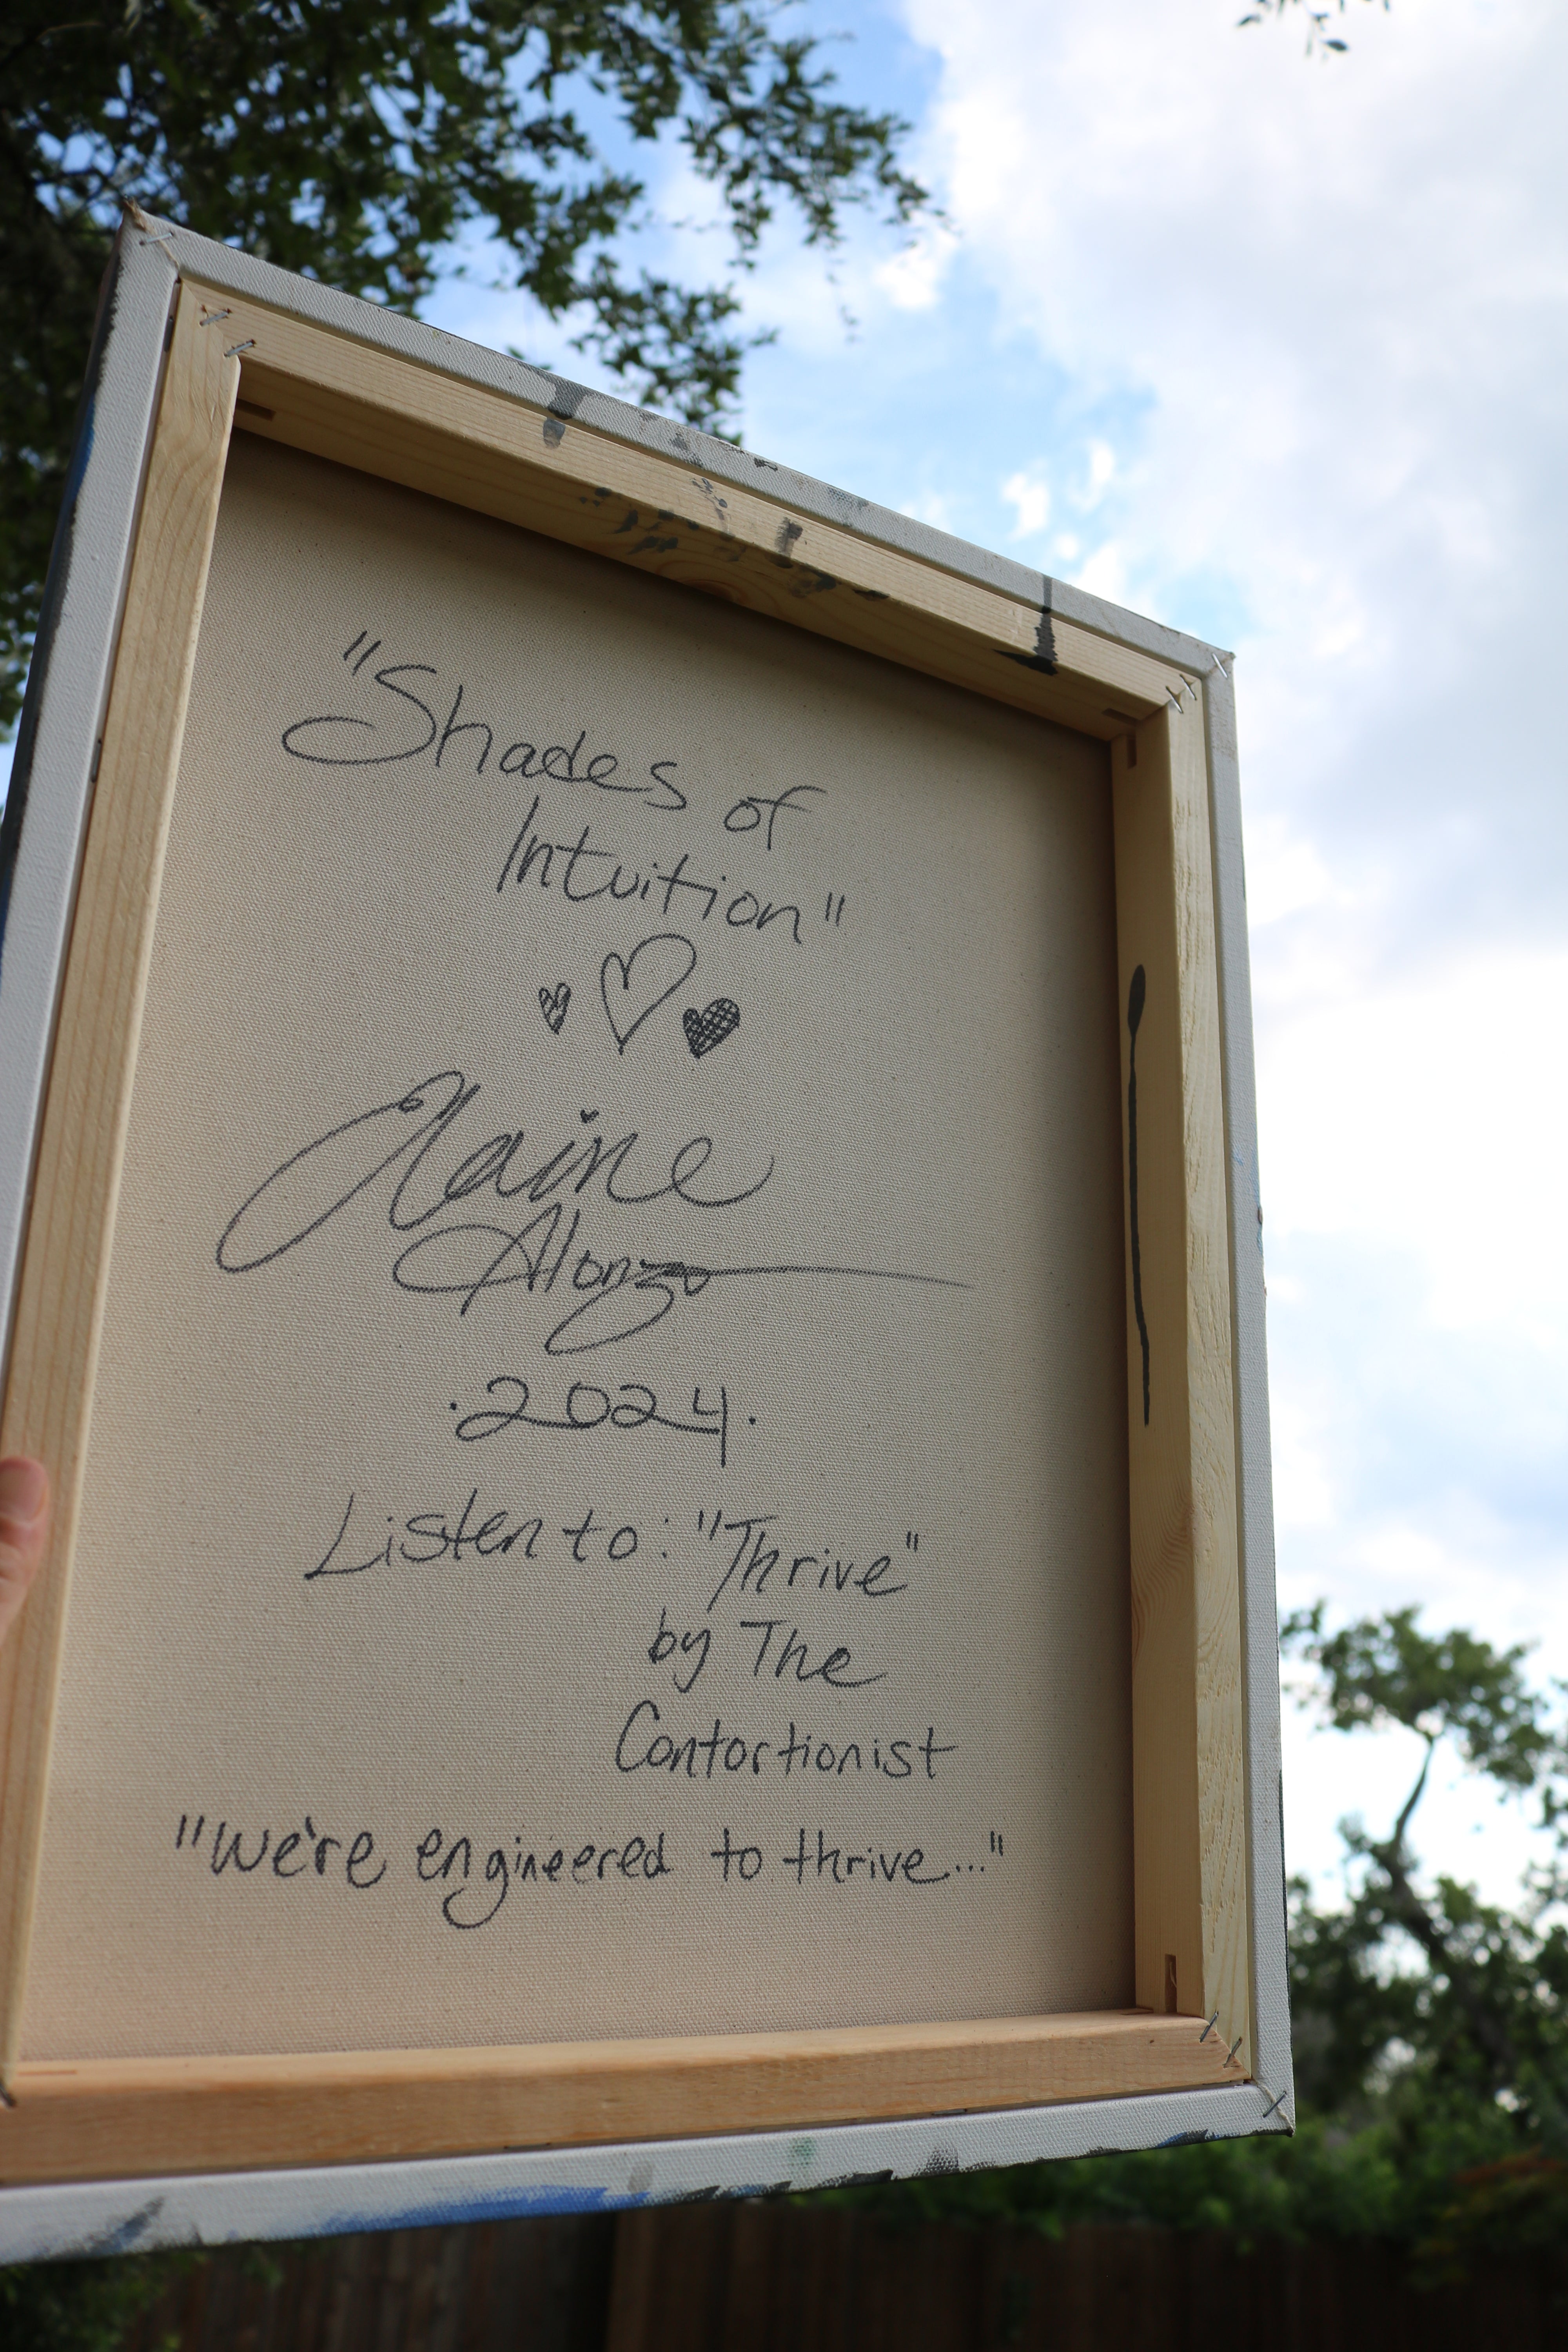 "Shades of
Intuition"
Elaine
Alonzo
·2024·
Listen to: "Thrive"
by The
Contortionist
"we're engineered to thrive..."